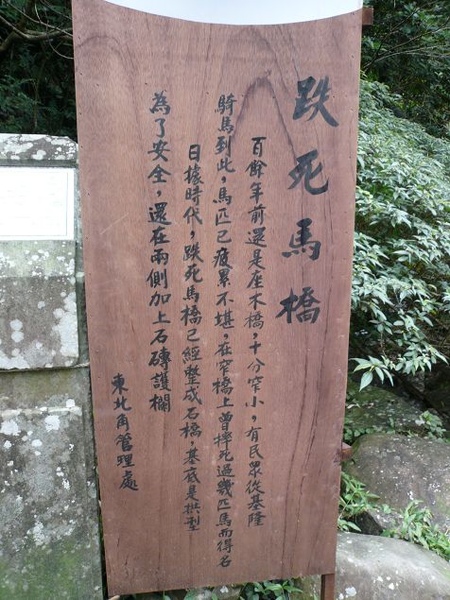 跌死馬橋
百餘年前還是座木橋，十分窄小，有民眾從基隆
騎馬到此，馬匹已疲累不堪，在窄橋上曾摔死過幾匹馬而得名
日據時代，跌死馬橋已經整成石橋，基底是拱型
為了安全，還在兩側加上石磚護欄
東北角管理處